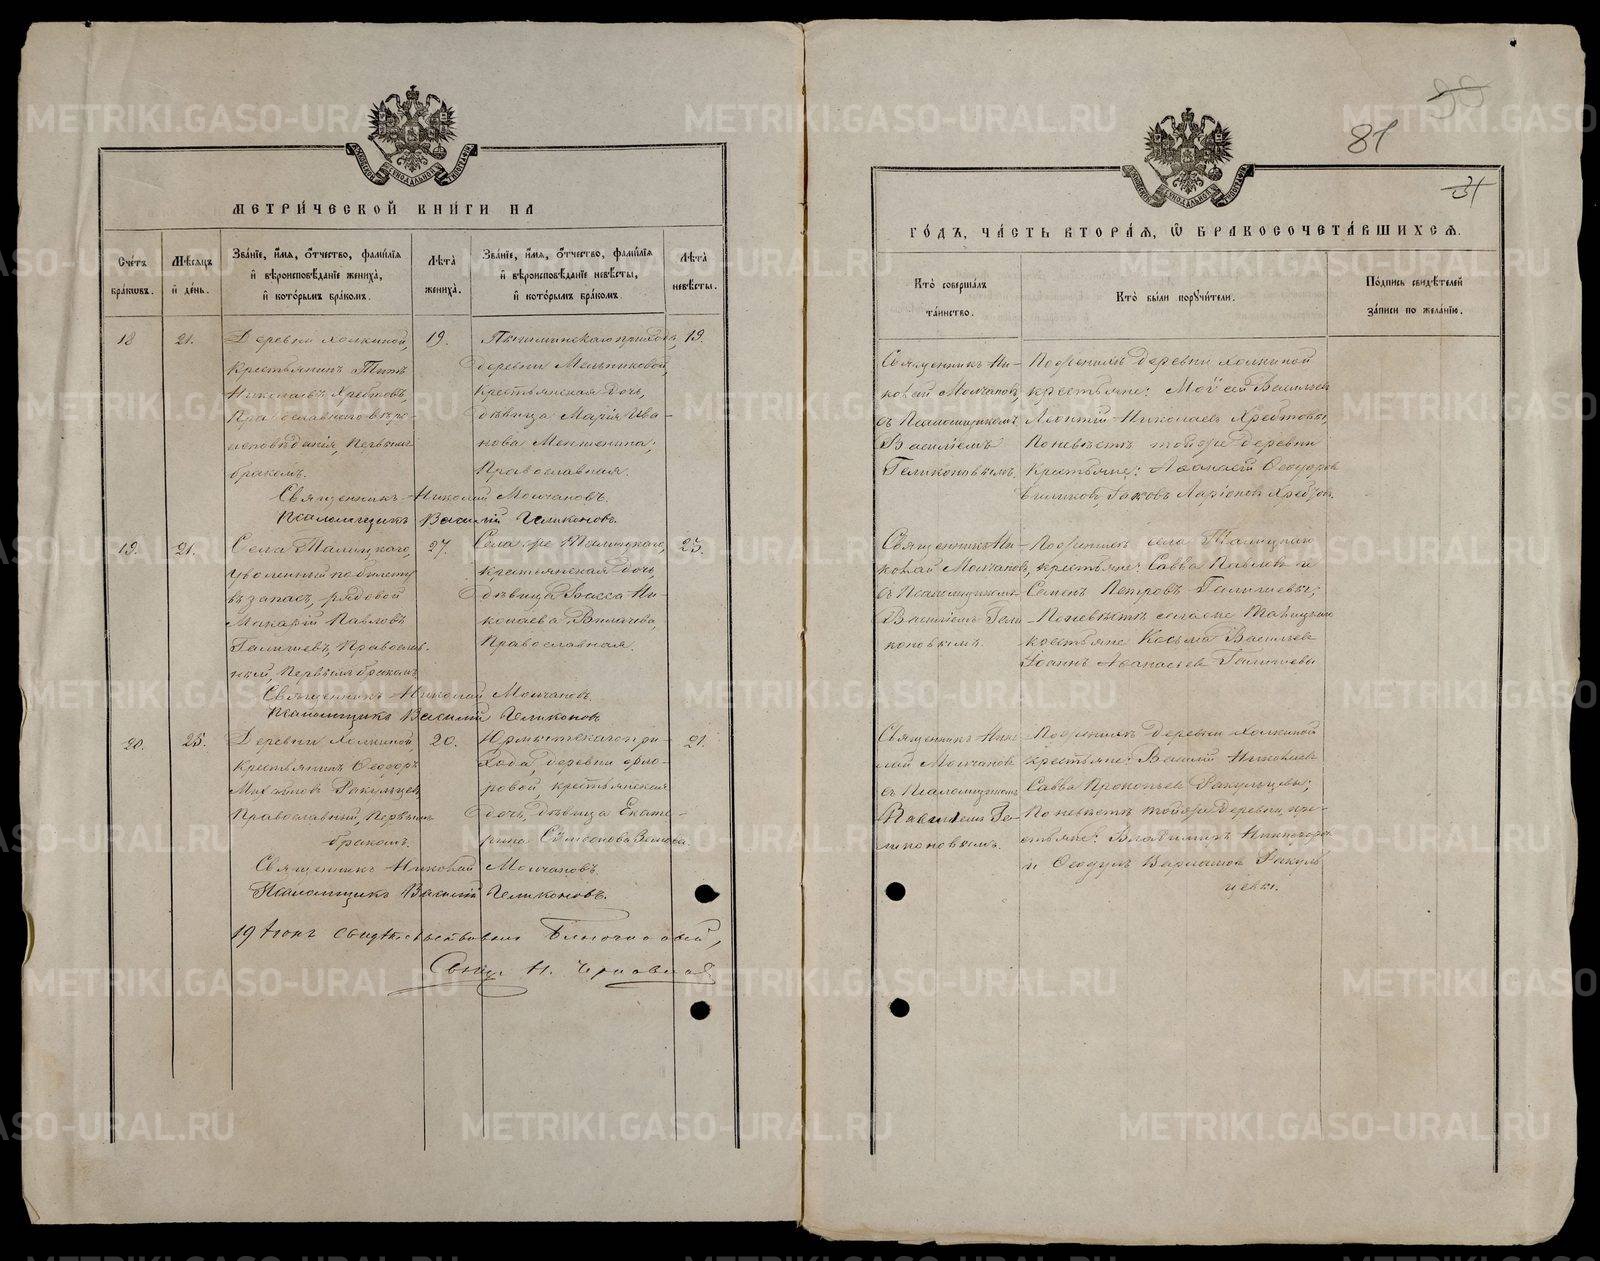 МЕТРИ́ЧЕСКОЙ КНИ́ГИ НА
Сче́тъ бра́кѡвъ.
Мѣ́сяцъ и҆ де́нь.
Зва́нїе, и҆́мѧ, ѻ҆́тчество, фами́лїѧ и҆ вѣроисповѣ́данїе жениха̀, и҆ кото́рымъ бра́комъ.
Лѣ́та жениха̀.
Зва́нїе, и҆́мѧ, ѻ҆́тчество, фами́лїѧ и҆ вѣроисповѣ́данїе невѣ́сты, и҆ кото́рымъ бра́комъ.
Лѣ́та невѣ́сты.
18
21.
Деревни Холкиной,
крестьянинъ Титъ
Николаевъ Хребтовъ,
Православнаго вѣро-
исповѣданія, первымъ
бракомъ.
19.
Пышминскаго прихода,
деревни Мельниковой,
крестьянская дочь,
дѣвица Марія Ива-
нова Меншенина,
Православная.
19.
Священникъ Николай Молчановъ.
Псаломщикъ Василій Геликоновъ.
19.
21.
Села Талицкаго,
уволенный по билету
въ запасъ, рядовой
Макарій Павловъ
Галишевъ, Православ-
ный, первымъ бракомъ
27.
Села же Талицкаго,
крестьянская дочь,
дѣвица Васса Ни-
колаева
Православная.
25.
Священникъ Николай Молчановъ.
Псаломщикъ Василій Геликоновъ
20.
25.
Деревни Холкиной,
крестьянинъ Ѳеодоръ
Михайловъ Ракульцевъ,
Православный, первымъ
бракомъ.
20.
при-
хода, деревни
крестьянская
дочь, дѣвица Екате-
рина Сѵмеонова
21.
Священникъ Николай Молчановъ.
Псаломщикъ Василій Геликоновъ.
19 Свидѣтельствовалъ Благочинный,
Свящ. Н.
81
31
ГО́ДЪ, ЧА́СТЬ ВТОРА́Ѧ, Ѡ҆ БРАКОСОЧЕТА́ВШИХСѦ.
Кто̀ соверша́лъ та́инство.
Кто̀ бы́ли порꙋчи́тели.
По́дпись свидѣ́телей за́писи по жела́нїю.
Священникъ Ни-
колай Молчановъ,
съ Псаломщикомъ
Василіемъ
Геликоновымъ.
По женихѣ деревни Холкиной
крестьяне: Моѵсей Васильевъ
Леонтій Николаевъ Хребтовы,
По невѣстѣ той же деревни
крестьяне: Аѳанасій Ѳеодоровъ
Іаковъ Ларіоновъ Хребтовъ.
Священникъ Ни-
колай Молчановъ,
съ Псаломщикомъ
Василіемъ Гели-
коновымъ.
По женихѣ села Талицкаго
крестьяне: Савва Павловъ и
Семенъ Петровъ Галишевы;
По невѣстѣ села же Талицкаго
крестьяне Косьма Васильевъ
Іоаннъ Аѳанасьевъ Галишевы
Священникъ Нико-
лай Молчановъ
съ Псаломщикомъ
Василіемъ Ге-
ликоновымъ.
По женихѣ деревни Холкиной
крестьяне: Василій Николаевъ
Савва Прокопьевъ Ракульцевы;
По невѣстѣ той же деревни кре-
стьяне: Владимиръ Никифоровъ
и Ѳеодулъ Варламовъ Ракуль-
цевы.
METRIKI.GASO-URAL.RU